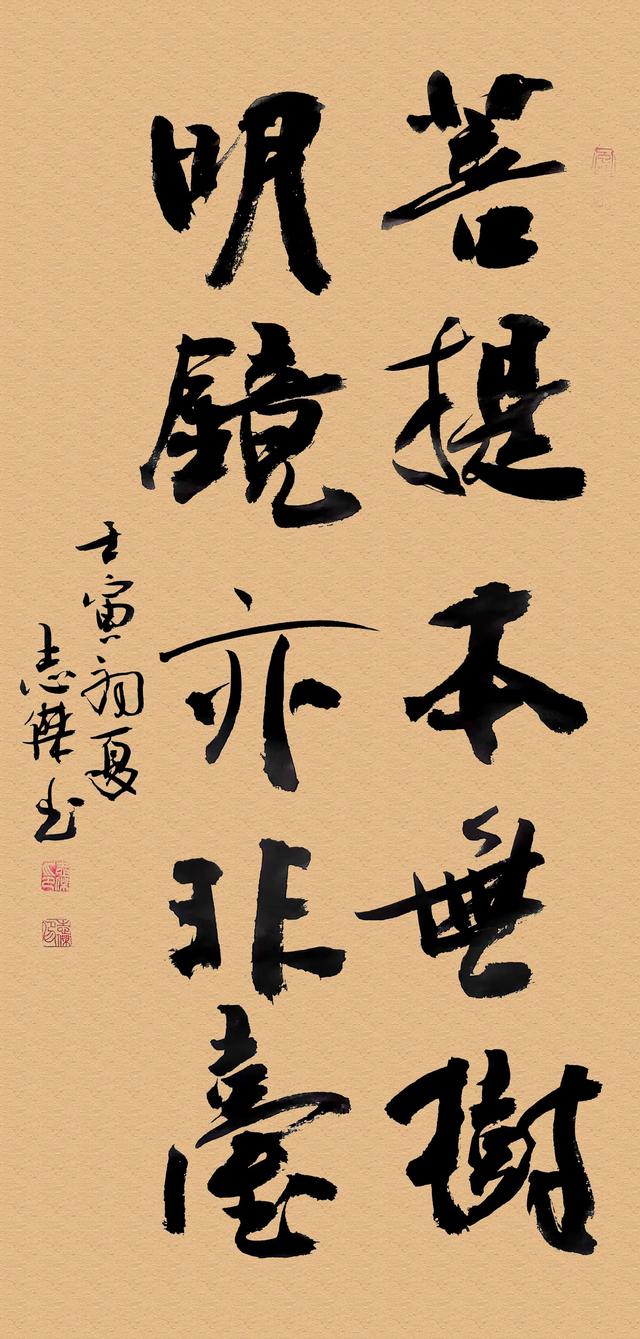 菩提本無樹
明鏡亦非臺
壬寅初夏
志傑书